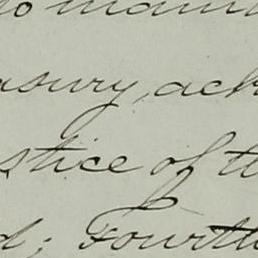 to maint
asury, ack
stice of t
d; Fourth